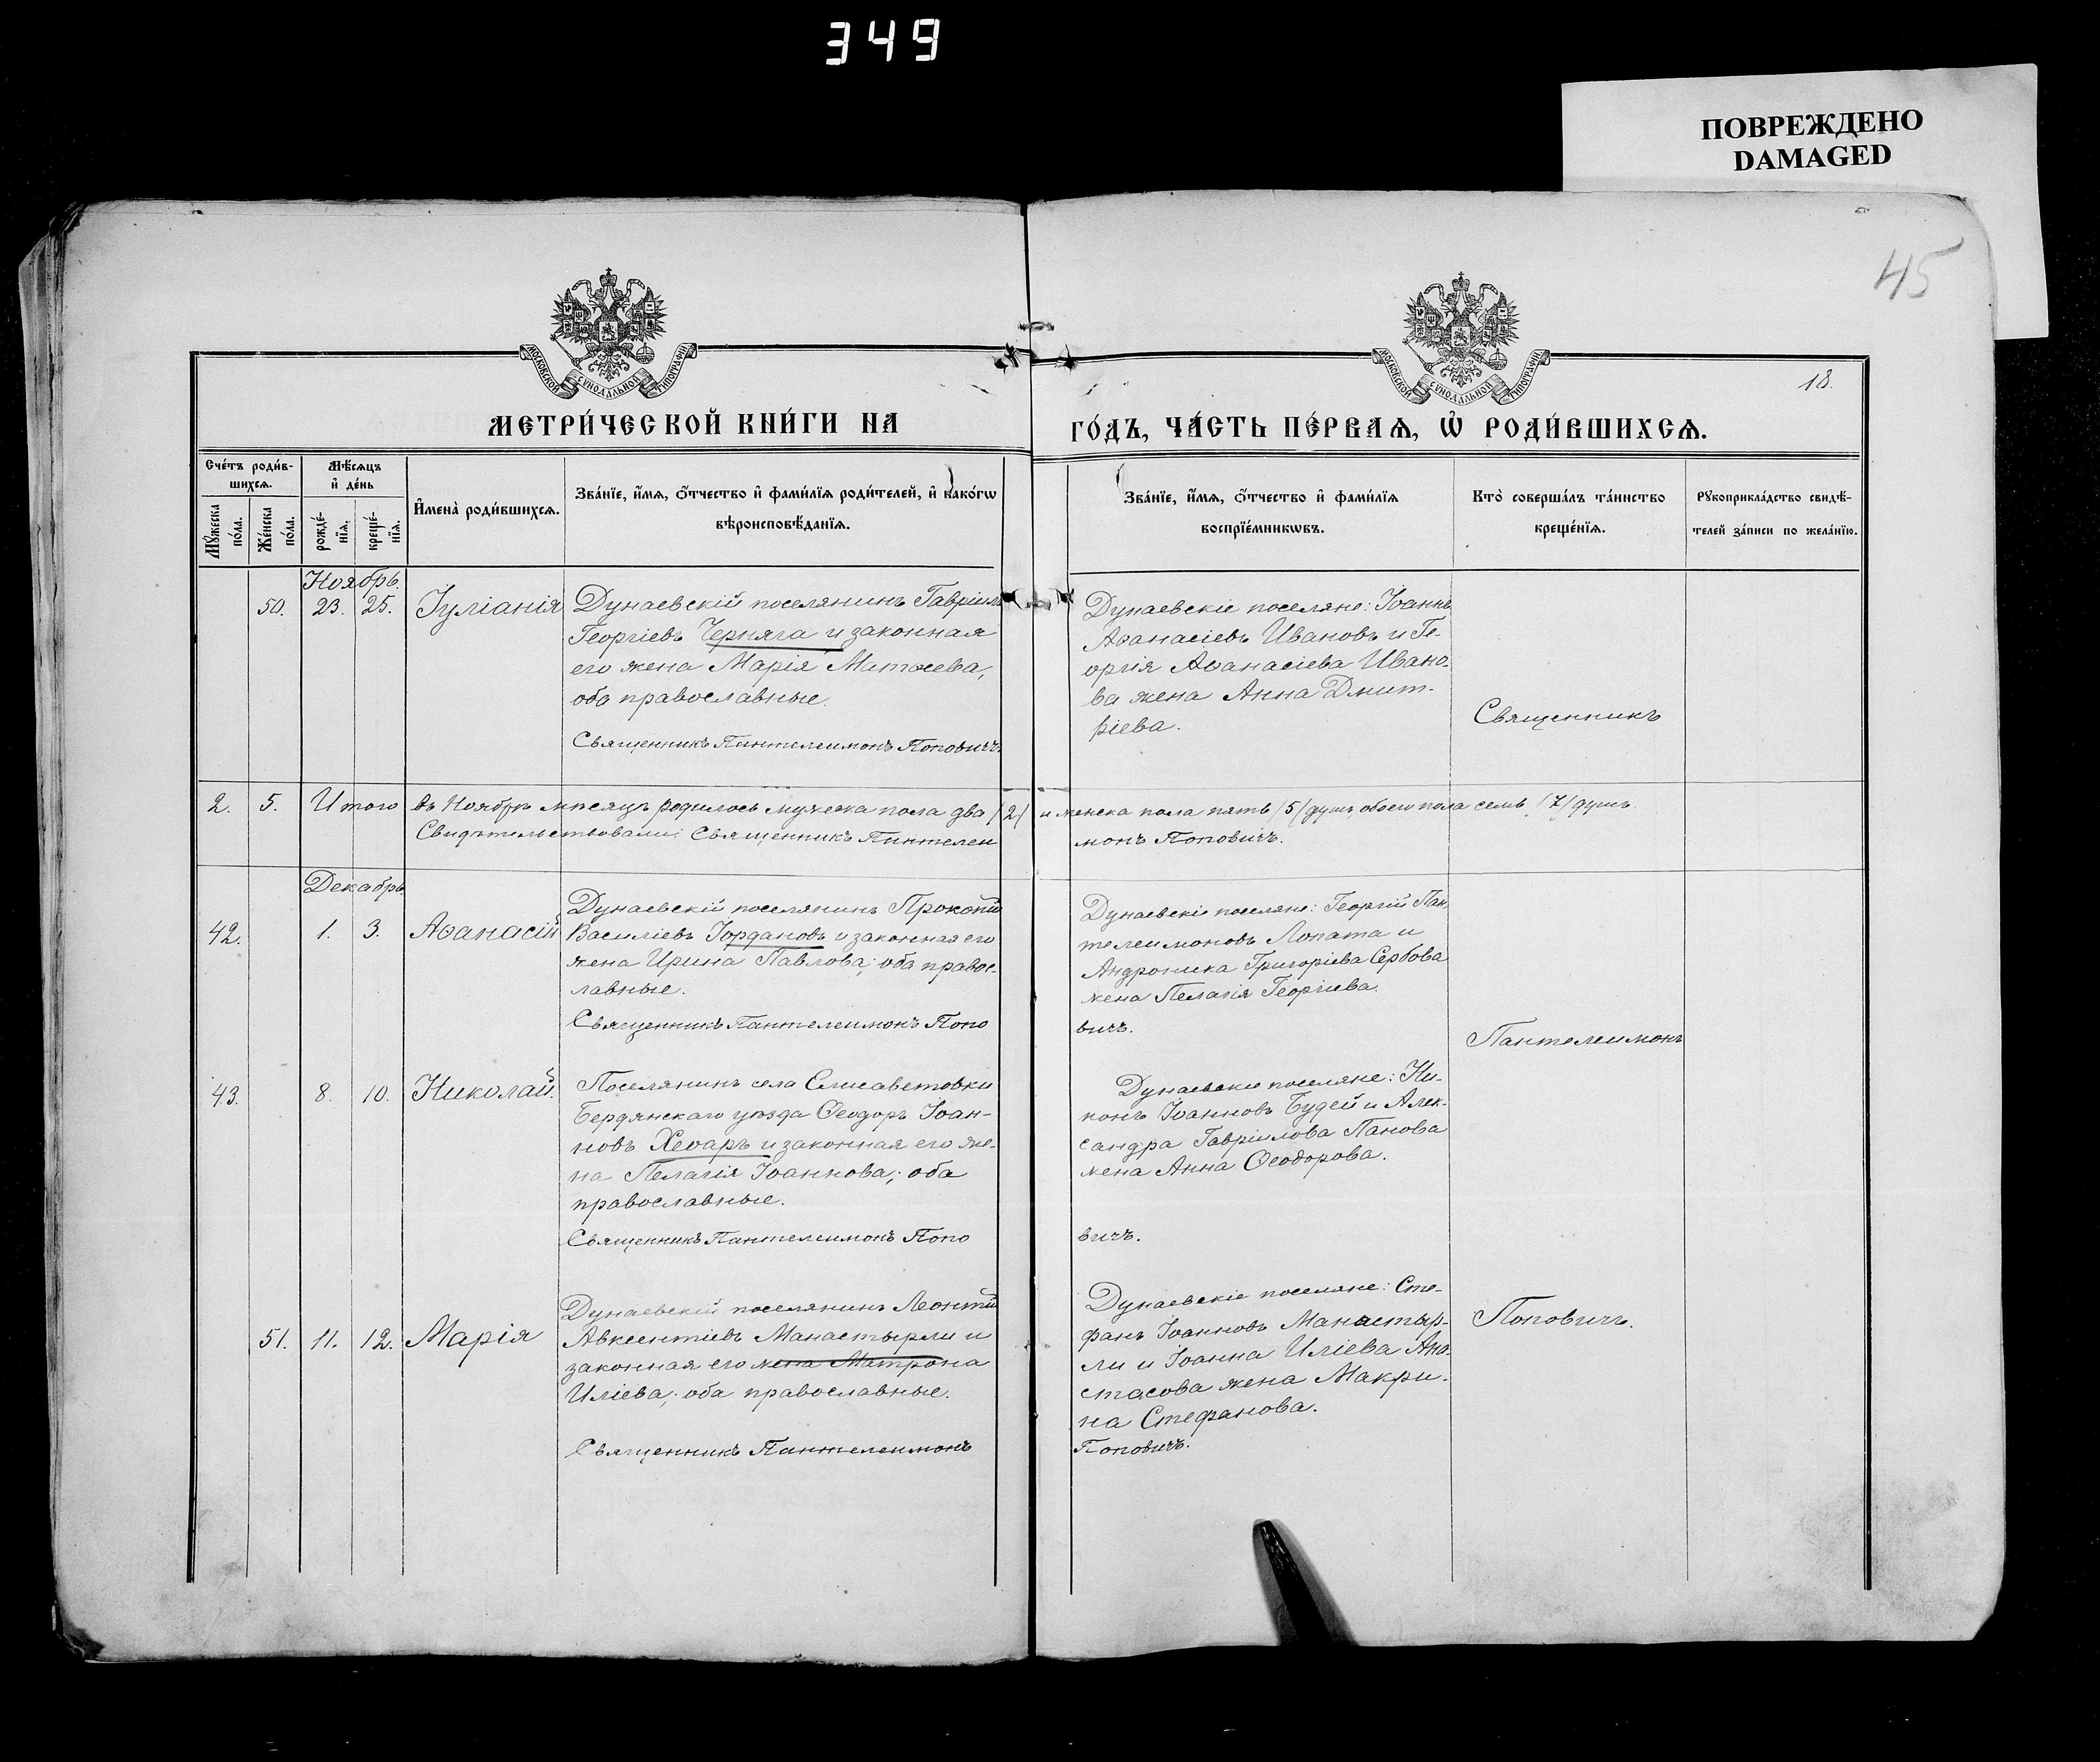 349
ПОВРЕЖДЕНО
DAMAGED
45
МОСКОВСКОЙ СѴНОДАЛЬНОЙ ТИПОГРАФІИ
МОСКОВСКОЙ СѴНОДАЛЬНОЙ ТИПОГРАФІИ
18.
МЕТРИ́ЧЕСКОЙ КНИ́ГИ НА
ГО́ДЪ, ЧА́СТЬ ПЕ́РВАѦ, Ѡ РОДИ́ВШИХСѦ.
Сче́тъ роди́в-
шихсѧ.
Мꙋ́жеска по́ла.
Же́нска по́ла.
Мѣ́сѧцъ
и҆ де́нь
рожде́-
нїѧ.
креще́-
нїѧ.
И҆мена̀ роди́вшихсѧ.
Зва́нїе, и҆́мѧ, ѻ҆́тчество и҆ фами́лїѧ роди́телей, и҆ како́гѡ
вѣроисповѣ́данїѧ.
Зва́нїе, и҆́мѧ, ѻ҆́тчество и҆ фами́лїѧ
воспрїе́мникѡвъ.
Кто̀ соверша́лъ та́инство
креще́нїѧ.
Рꙋкоприкла́дство свидѣ́-
телей за́писи по жела́нїю.
Ноябрь.
50. 23. 25. Іуліанія
Дунаевскій поселянинъ Гавріилъ
Георгіевъ Черняга и законная
его жена Марія Матѳеева,
оба православные.
Священникъ Пантелеимонъ Поповичъ.
Дунаевскіе поселяне: Іоаннъ
Аѳанасіевъ Ивановъ и Ге-
оргія Аѳанасіева Ивано-
ва жена Анна Дмит-
ріева.
Священникъ
2. 5. Итого въ Ноябрѣ мѣсяцѣ родилось мужеска пола два /2/ и женска пола пять /5/ душъ, обоего пола семь /7/ душъ.
Свидѣтельствовали: Священникъ Пантелеи
монъ Поповичъ.
Декабрь
42. 1. 3. Аѳанасій
Дунаевскій поселянинъ Прокопій
Василіевъ Іордановъ и законная его
жена Ирина Павлова; оба правос-
лавные.
Священникъ Пантелеимонъ Попо
Дунаевскіе поселяне: Георгій Пан-
телеимоновъ Лопата и
Андроника Григоріева Сербова
жена Пелагія Георгіева.
вичъ.
Пантелеимонъ
43. 8. 10. Николай.
Поселянинъ села Елисаветовки
Бердянскаго уѣзда Ѳеодоръ Іоан-
новъ Хеѳаръ и законная его же-
на Пелагія Іоаннова; оба
православные.
Священникъ Пантелеимонъ Попо
Дунаевскіе поселяне: Ни-
конъ Іоанновъ Будей и Алек-
сандра Гавріилова Панова
жена Анна Ѳеодорова.
вичъ.
51. 11. 12. Марія
Дунаевскій поселянинъ Леонтій
Авксентіевъ Манастырли и
законная его жена Матрона
Иліева; оба православные.
Священникъ Пантелеимонъ
Дунаевскіе поселяне: Сте-
фанъ Іоанновъ Манастыр-
ли и Іоанна Иліева Ана-
стасова жена Макри-
на Стефанова.
Поповичъ.
Поповичъ.